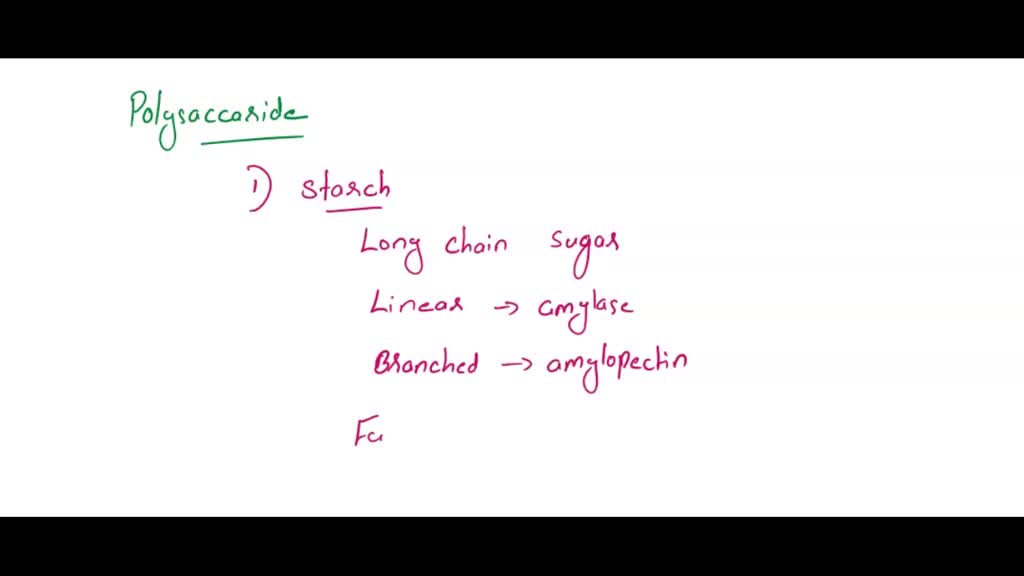 Polysaccaride
1) Starch
Long chain sugar
Linear → amylase
Branched → amylopectin
Fa